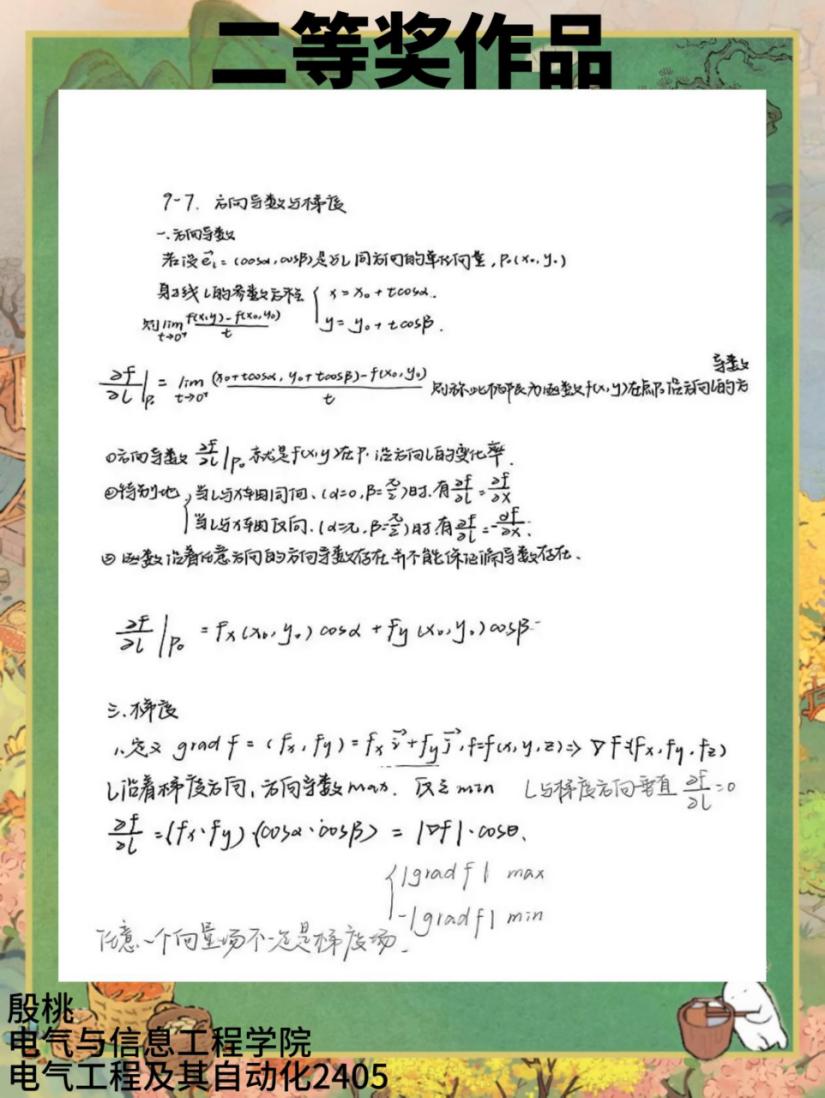 二等奖作品
9-7. 方向导数与梯度
一.方向导数
若设 e⃗ₗ=(cosα,cosβ)是与L同方向的单位向量, P₀(x₀,y₀)
射线L的参数方程 { x=x₀+tcosα.
y=y₀+tcosβ.
则 lim t→0⁺ f(x,y)-f(x₀,y₀) / t
导数
∂f/∂L |P₀ = lim t→0⁺ (x₀+tcosα, y₀+tcosβ)-f(x₀,y₀) / t 则称此极限为函数f(x,y)在点P₀沿方向L的方
①方向导数 ∂f/∂L |P₀ 就是f(x,y)在P₀沿方向L的变化率.
②特别地 { 当L与x轴同向、(α=0,β=π/2)时.有 ∂f/∂L = ∂f/∂x
当L与x轴反向、(α=π,β=π/2)时.有 ∂f/∂L = -∂f/∂x.
③ 函数沿着任意方向的方向导数存在并不能保证偏导数存在、
∂f/∂L |P₀ = fx(x₀,y₀)cosα + fy(x₀,y₀)cosβ
三.梯度
1、定义 grad f = (fx,fy) = fx i⃗ + fy j⃗, f=f(x,y,z) ⇒ ∇f=(fx,fy,fz)
L沿着梯度方向,方向导数max. 反之min L与梯度方向垂直 ∂f/∂L=0
∂f/∂L = (fx·fy)·(cosα·cosβ) = |∇f|·cosθ、
{ |grad f| max
-|grad f| min
任意一个向量场不一定是梯度场.
殷桃
电气与信息工程学院
电气工程及其自动化2405